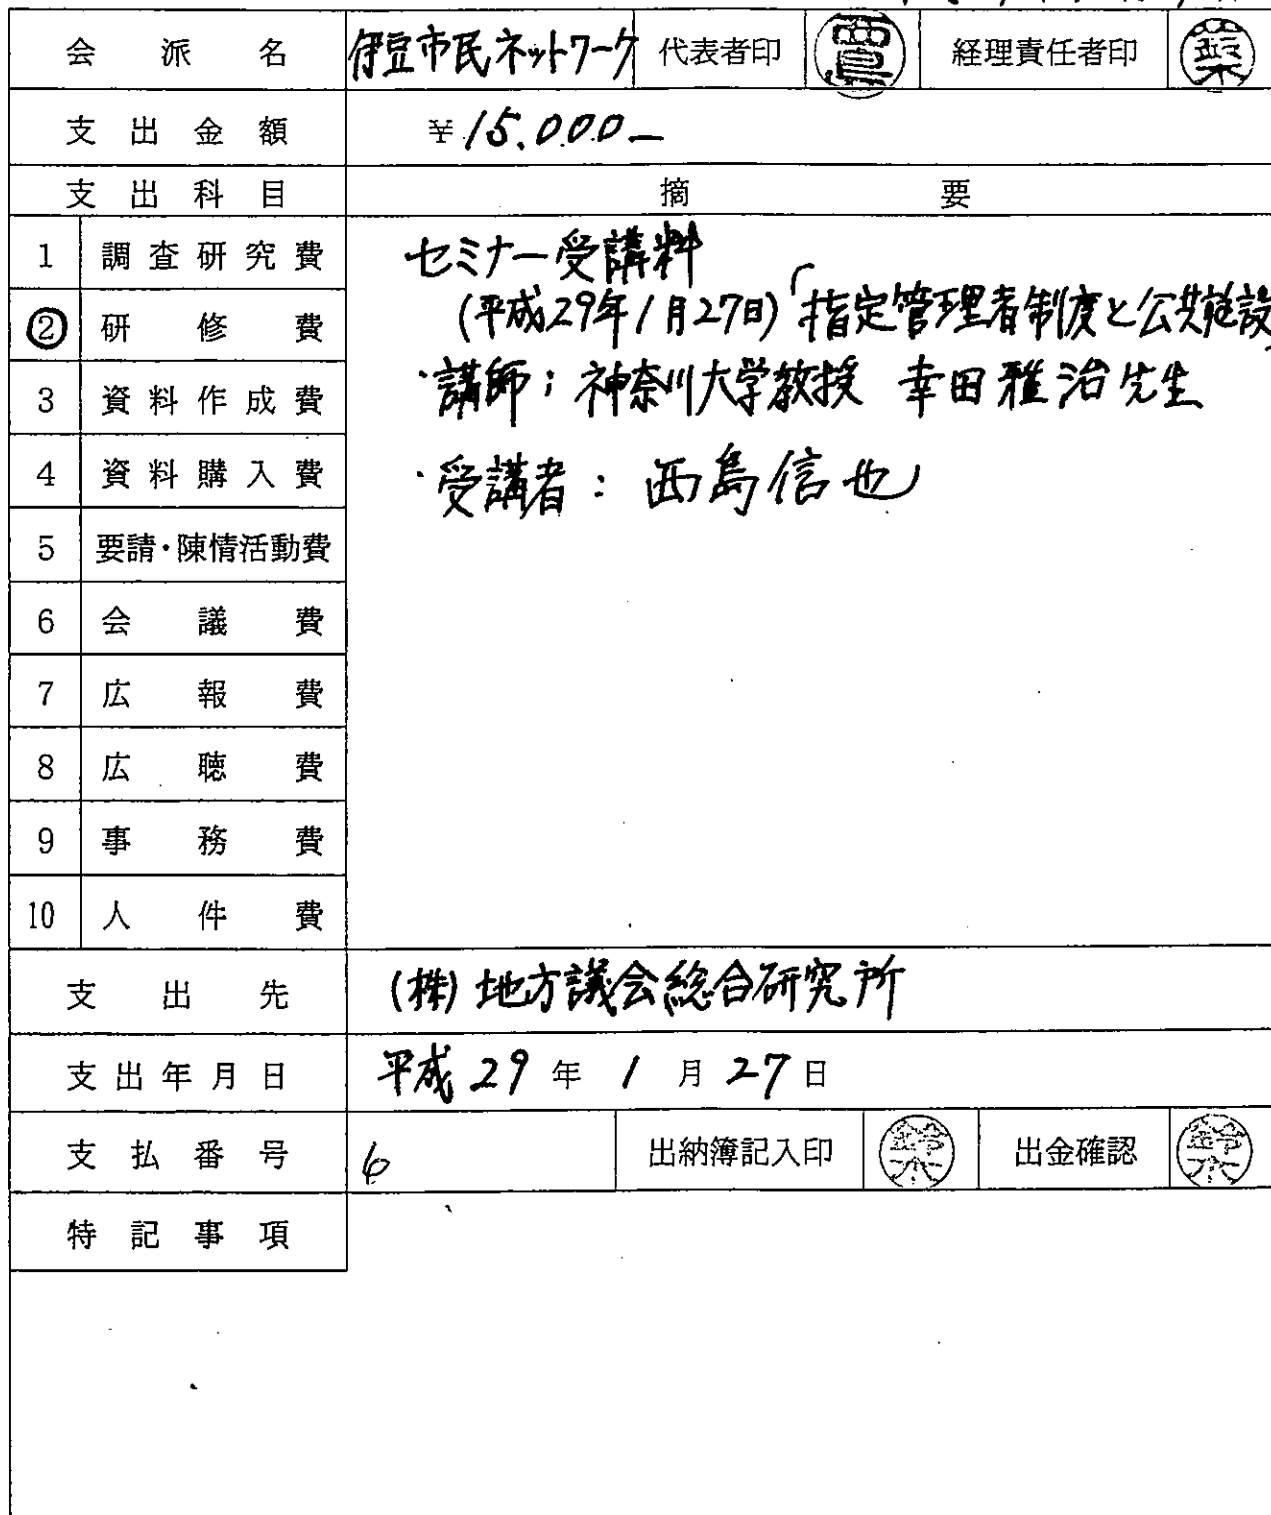 会派名 伊豆市民ネットワーク 代表者印 西島 経理責任者印
支出金額 ¥15,000-
支出科目 摘要
1 調査研究費 セミナー受講料
② 研修費 (平成29年1月27日)「指定管理者制度と公共施設
3 資料作成費 ・講師；神奈川大学教授 幸田雅治先生
4 資料購入費 ・受講者：西島信也
5 要請・陳情活動費
6 会議費
7 広報費
8 広聴費
9 事務費
10 人件費
支出先 (株)地方議会総合研究所
支出年月日 平成29年1月27日
支払番号 6 出納簿記入印 鈴木 出金確認 鈴木
特記事項